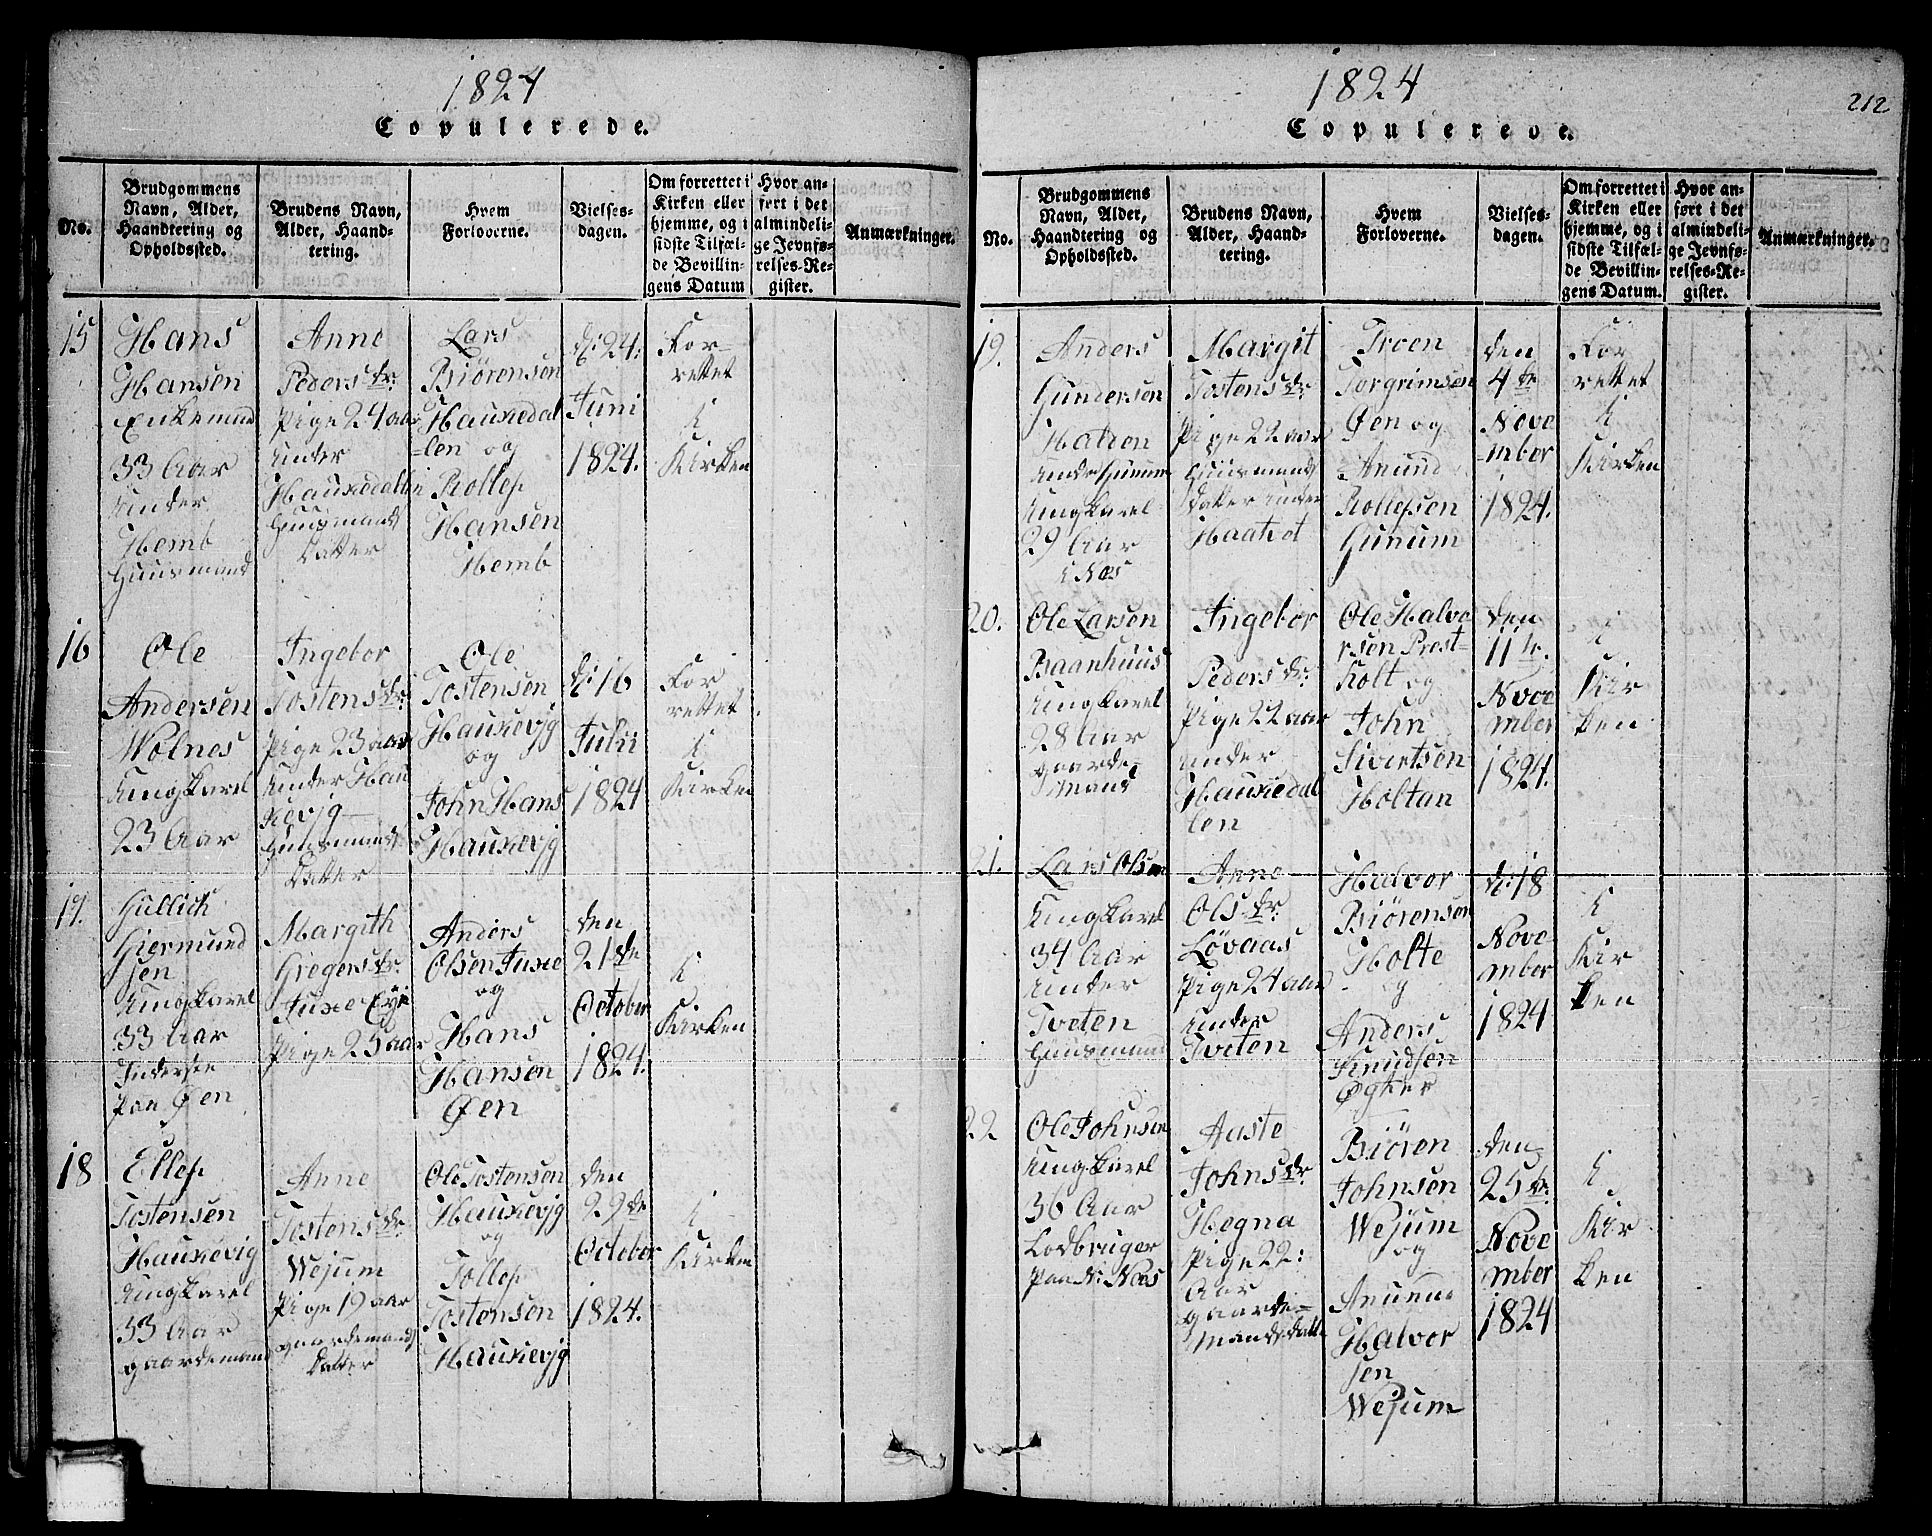 1824
Copulerede.
No.
Brudgommens
Navn, Alder,
Haandtering og
Opholdssted.
Brudens Navn,
Alder, Haand-
tering.
Hvem
Forloverne.
Vielses-
dagen.
Om forrettet i
Kirken eller
hjemme, og i
sidste Tilfæl-
de Bevillin-
gens Datum
Hvor an-
ført i det
almindeli-
ge Jevnfø-
relses-Re-
gister.
Anmærkninger.
15
Hans
Hansen
Enkemand
33 Aar
under
Hemb
Huusmand
Anne
Peders dr.
Pige 24 aar
under
Hauxedallen
Huusmands
Datter
Lars
Biörensen
Hauxedal
-len og
Rollef
Hansen
Hemb
d: 24:
Juni
1824.
For-
rettet
i
Kirken
16
Ole
Andersen
Wolnes
Ungkarel
23 Aar
Ingebor
Tostens dr.
Pige 23 aar
under Hau
xevig
Huusmands
Datter
Ole
Tostensen
Hauxevjg
og
John Hans
Hauxevjg
d: 16
Julii
1824
For
rettet
i
Kirken
17.
Gullich
Giermund
sen
Ungkarel
33 Aar
Inderste
paa Øen
Margith
Gregers dr.
Juxe Eye
Pige 25 aar
Anders
Olsen Juxe
og
Hans
Hansen
Øen
den
21de
October
1824.
i
Kirken
18
Ellef
Tostensen
Hauxevig
Ungkarel
33 Aar
gaardemand
Anne
Tostens dr.
Wejum
Pige 19 aar
gaardemands
Datter
Ole Tostensen
Hauxevjg
og
Tollef
Tostensen
Hauxevjg
den
29de
October
1824.
i
Kirken
1824
212
Copulerede.
No.
Brudgommens
Navn, Alder,
Haandtering og
Opholdssted.
Brudens Navn,
Alder, Haand-
tering.
Hvem
Forloverne.
Vielses-
dagen.
Om forrettet i
Kirken eller
hjemme, og i
sidste Tilfæl-
de Bevillin-
gens Datum.
Hvor an-
ført i det
almindeli-
ge Jevnfø-
relses-Re-
gister.
Anmærkninger.
19.
Anders
Gundersen
Halden
Ungkarel
29 Aar
i Næs
Margit
Tostens dr.
Pige 22 aar
Huusmands
Datter under
Haatvet
Troen
Torgrimsen
Øen og
Anund
Rollefsen
Gunum
den
4de
Nove
-mber
1824.
For
rettet
i
Kirken
20.
Ole Larsen
Baanhuus
Ungkarel
28 Aar
gaarde-
mand
Ingebor
Peders dr.
Pige 22 aar
under
Hauxedal
len
Ole Halvo
rsen Prest-
holt og
John
Sivertsen
Holtan
den
11te.
Nove
mber
1824.
i
Kir
ken
21.
Lars Olsen
Ungkarel
34 Aar
under
Tveten
Huusmand
Anne
Ols dr.
Løvaas
Pige 24 aar
under
Tveten
Halvor
Biörensen
Holte
og
Anders
Knudsen
d: 18
Nove
mber
1824
i
Kir
ken
22
Ole Johnsen
Ungkarel
36 Aar
Lodbruger
paa N: Næs
Aaste
Johns dr.
Hegna
Pige 22:
Aar
gaarde-
mandsdatter
Biören
Johnsen
Wejum
og
Anund
Halvor
sen
Wejum
den
25de.
Nove
mber
1824
i
Kir
ken